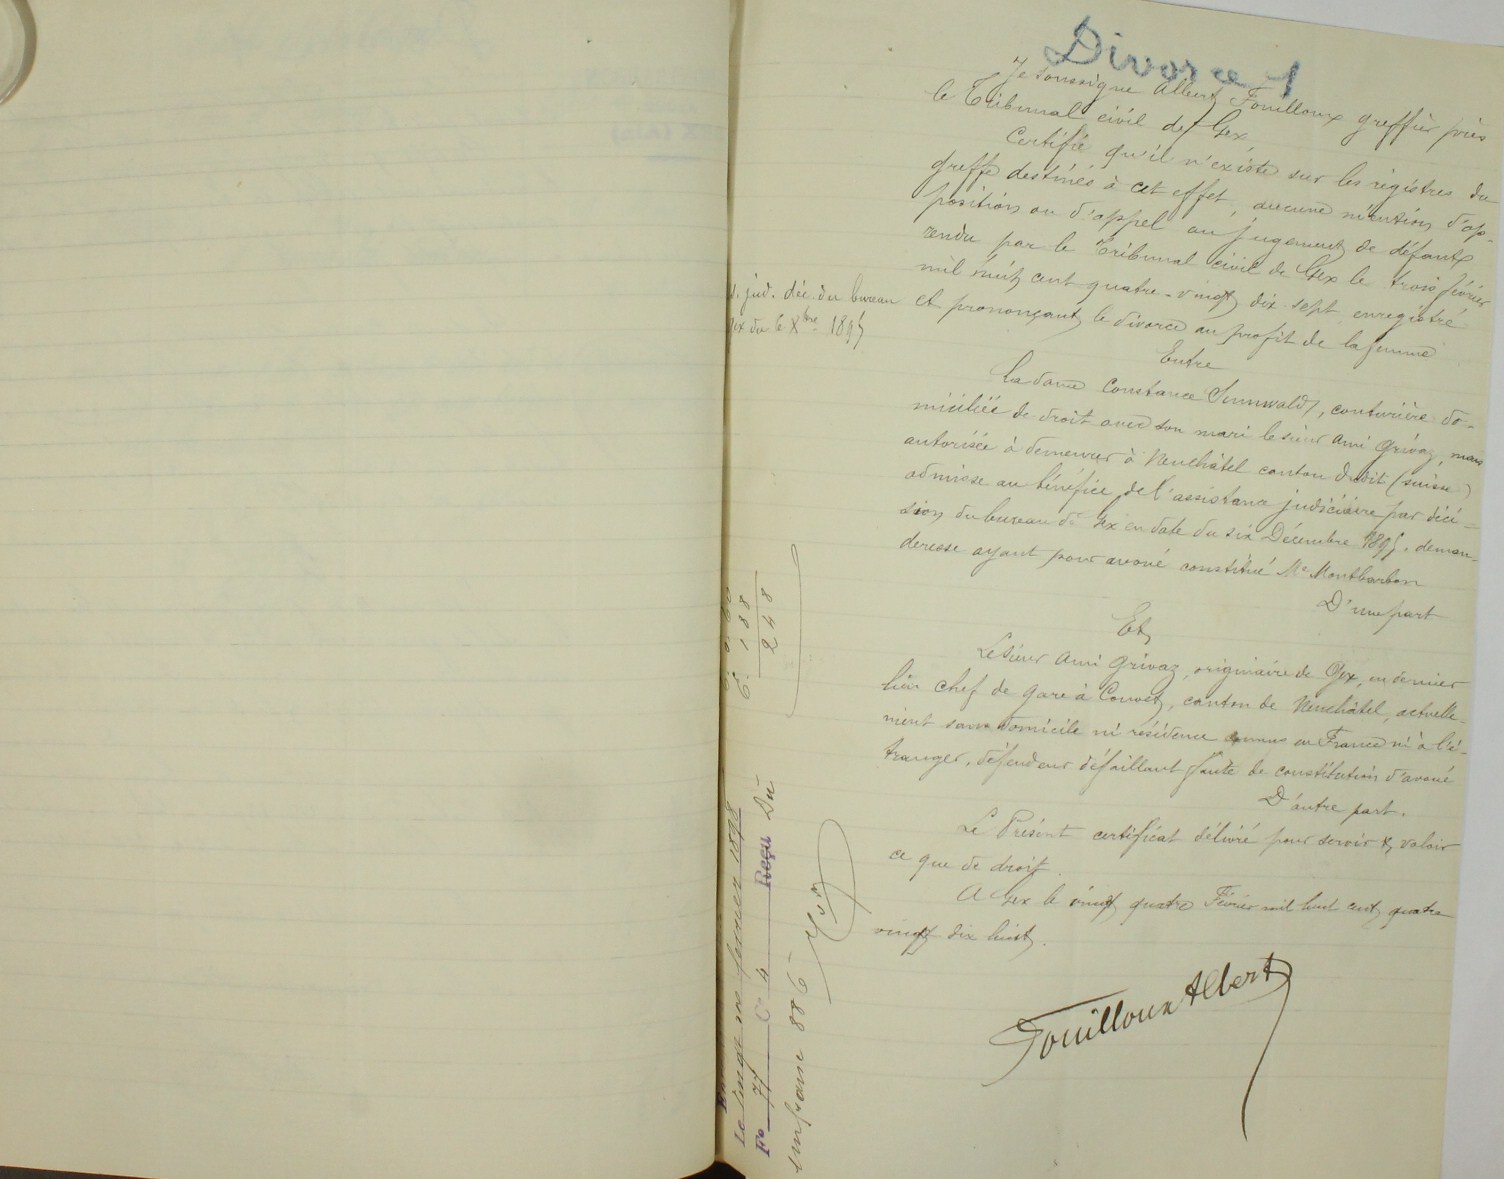 Divorce 1
Je soussigné Albert Fouilloux greffier près
le Tribunal civil de Gex
Certifie qu'il n'existe sur les registres du
greffe destinés à cet effet, aucune mention d'op-
position ou d'appel au jugement de défaut
rendu par le Tribunal civil de Gex le trois février
mil huit cent quatre-vingt dix sept enregistré
et prononçant le divorce au profit de la femme
Entre
La dame Constance Sunnwald, couturière do-
miciliée de droit avec son mari le sieur Ami Grivaz, mais
autorisée à demeurer à Neuchâtel canton dudit (suisse)
admise au bénéfice de l'assistance judiciaire par déci-
sion du bureau de Gex en date du six Décembre 1895. deman-
deresse ayant pour avoué constitué Me Montbarbon
D'une part
Et
Le sieur Ami Grivaz, originaire de Gex, en dernier
lieu chef de gare à Couvet, canton de Neuchâtel, actuelle-
ment sans domicile ni résidence connus en France ni à l'é-
tranger, défendeur défaillant faute de constitution d'avoué
D'autre part.
Le Présent certificat délivré pour servir & valoir
ce que de droit.
A Gex le vingt quatre Février mil huit cent quatre
vingt dix huit.
Fouilloux Albert
jud. déc. du bureau
Gex du 6 Xbre 1895
188
248
Le vingt six février 1898
F° 71 C° 4 Reçu Dû
un franc 88 c